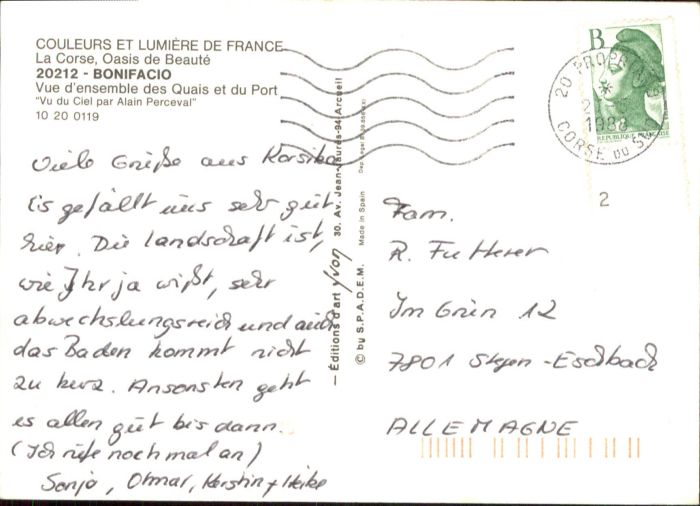 COULEURS ET LUMIÈRE DE FRANCE
La Corse, Oasis de Beauté
20212 - BONIFACIO
Vue d'ensemble des Quais et du Port
"Vu du Ciel par Alain Perceval"
10 20 0119
Viele Grüße aus Korsika
Es gefällt uns sehr gut
hier. Die Landschaft ist,
wie Ihr ja wißt, sehr
abwechslungsreich und auch
das Baden kommt nicht
zu kurz. Ansonsten geht
es allen gut bis dann.
(Ich rufe noch mal an)
Sonja, Otmar, Kerstin + Heike
— Éditions d'art yvon 30, Av. Jean-Jaurès-94-Arcueil
© by S.P.A.D.E.M. Made in Spain Dep. Legal
B
REPUBLIQUE FRANÇAISE
20 PROPRIANO
1988
CORSE DU SUD
2
Fam.
R. Futterer
Im Grün 12
7801 Stegen-Eschbach
ALLEMAGNE